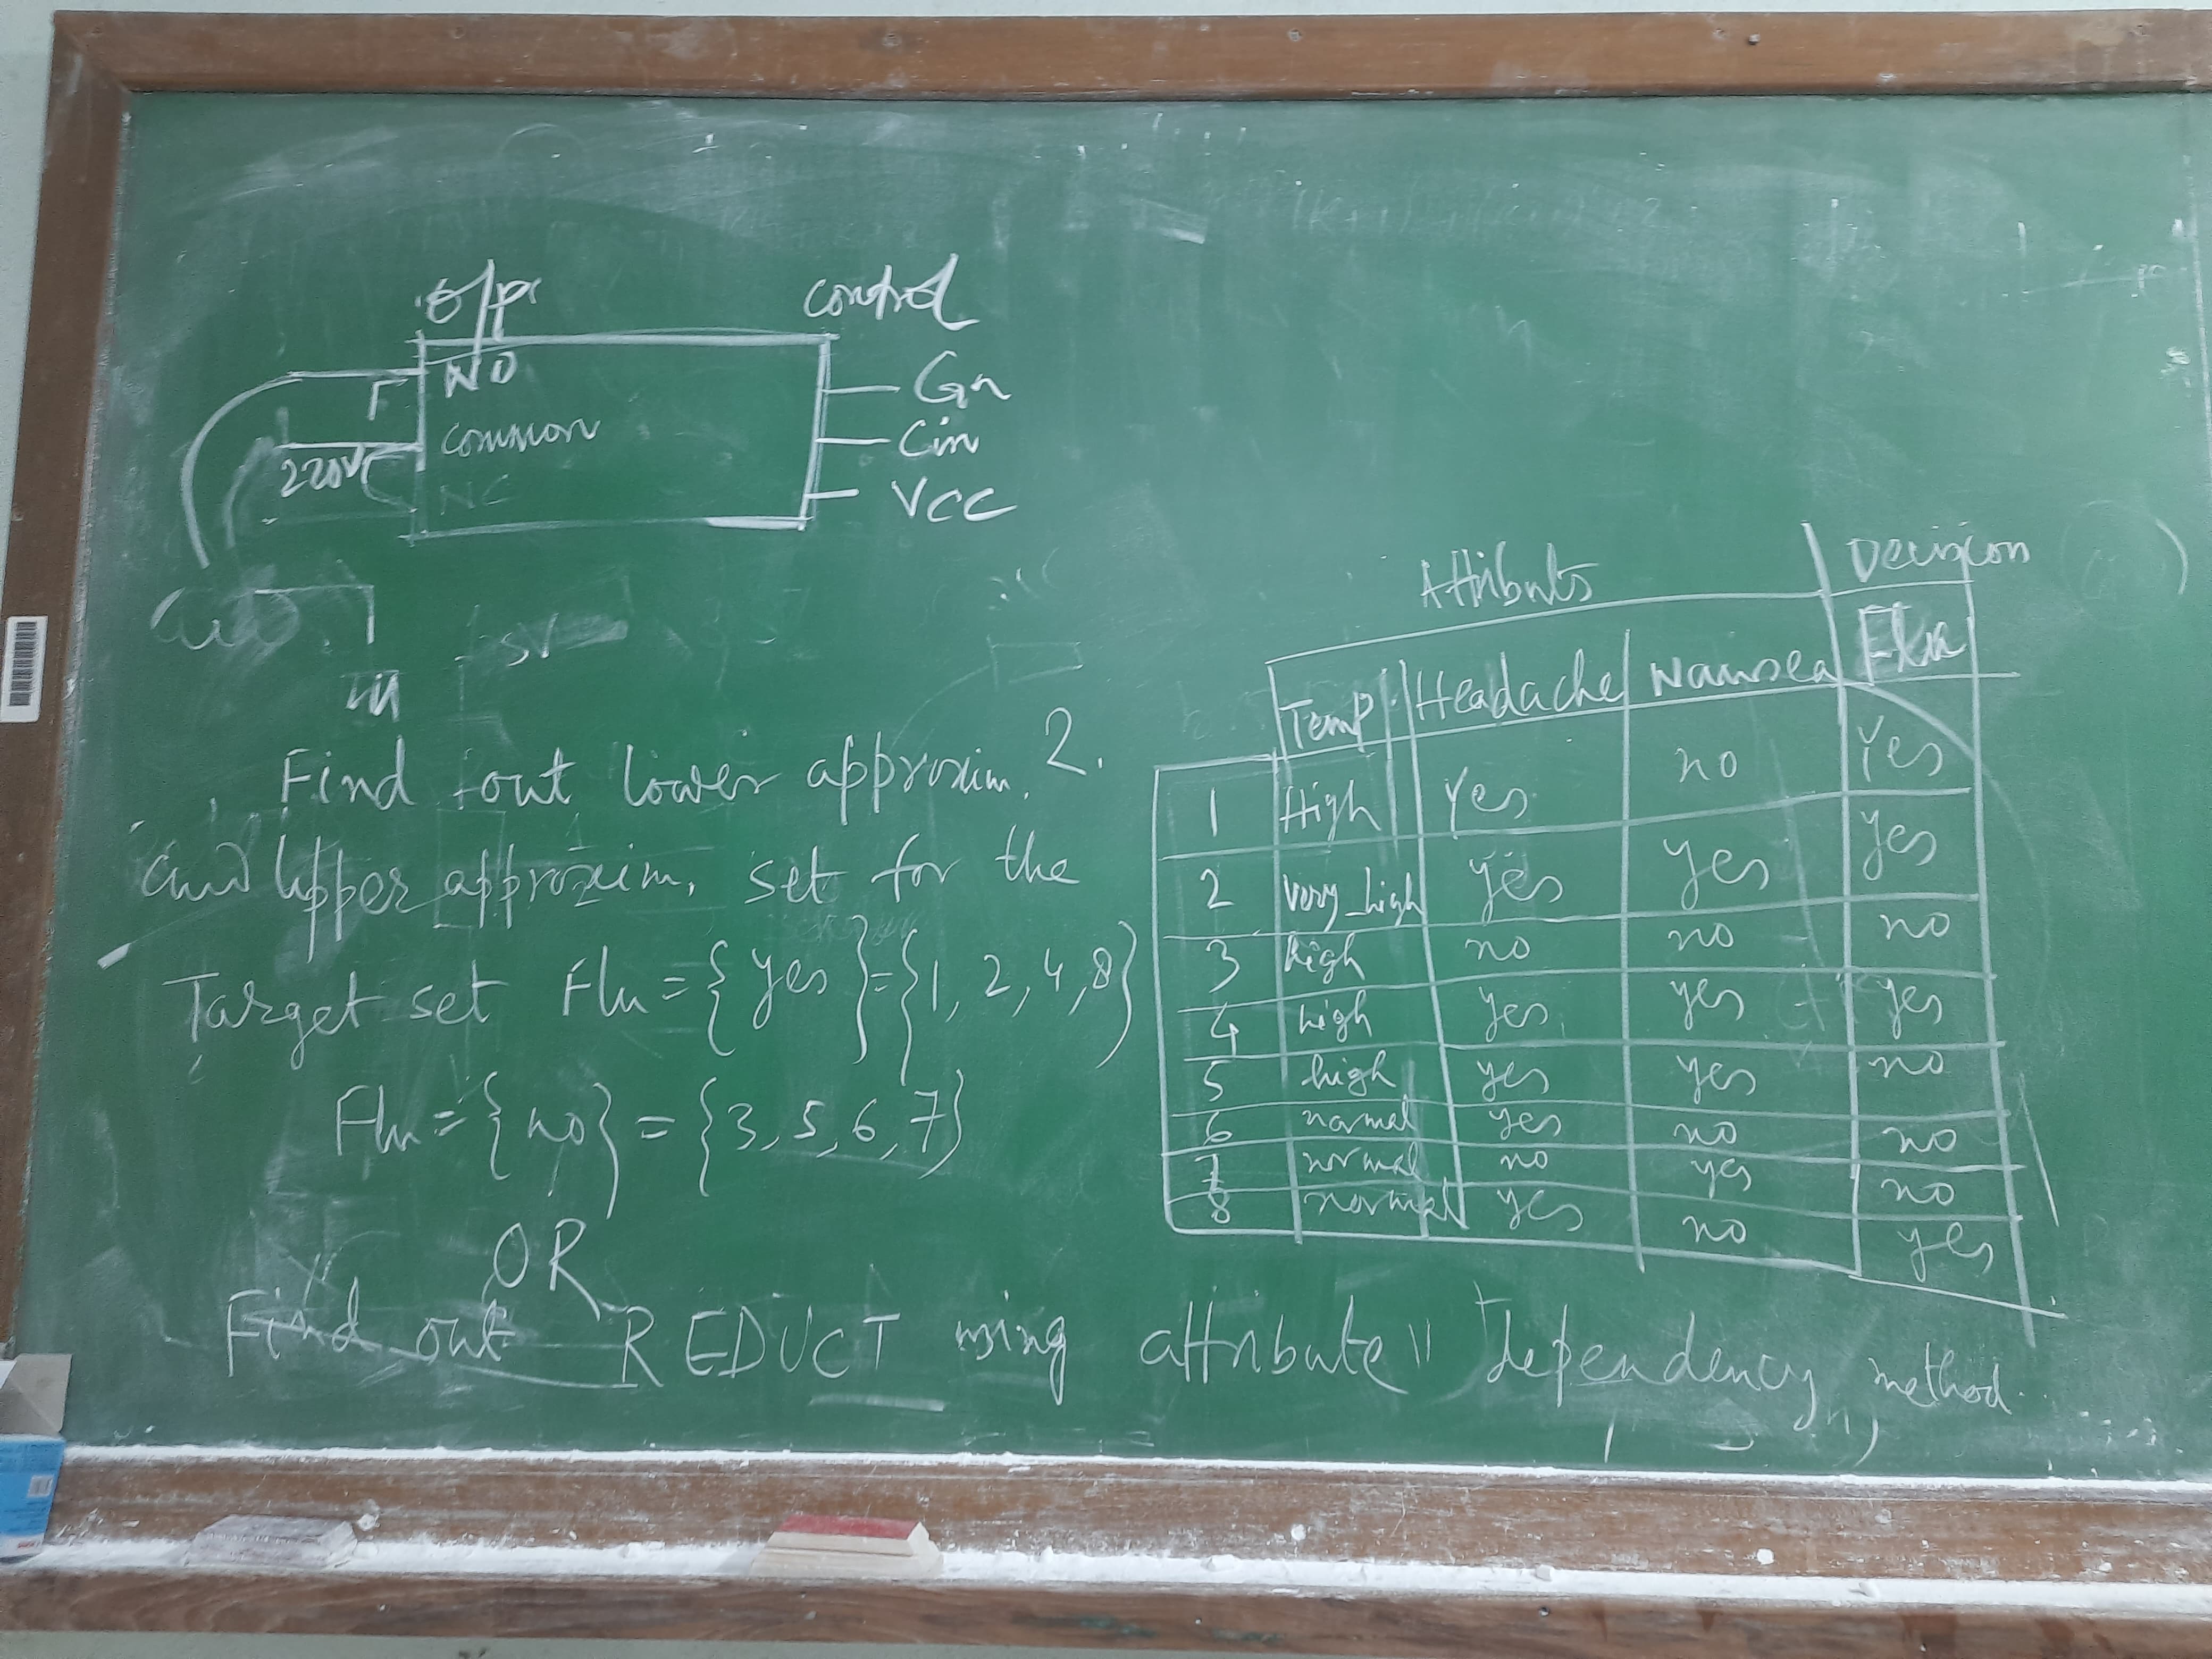 o/p
control
NO
Gn
common
Cin
220V
NC
VCC
5V
Find out lower approxim.
and Upper approxim. set for the
Target set Flu = { yes } = {1, 2, 4, 8}
Flu = { no } = {3, 5, 6, 7}
OR
Find out REDUCT using attribute dependency method.
Attributs Decision
Temp Headache Nausea Flu
1 High Yes no Yes
2 very_high yes yes yes
3 high no no no
4 high yes yes yes
5 high yes yes no
6 normal yes no no
7 normal no yes no
8 normal yes no yes